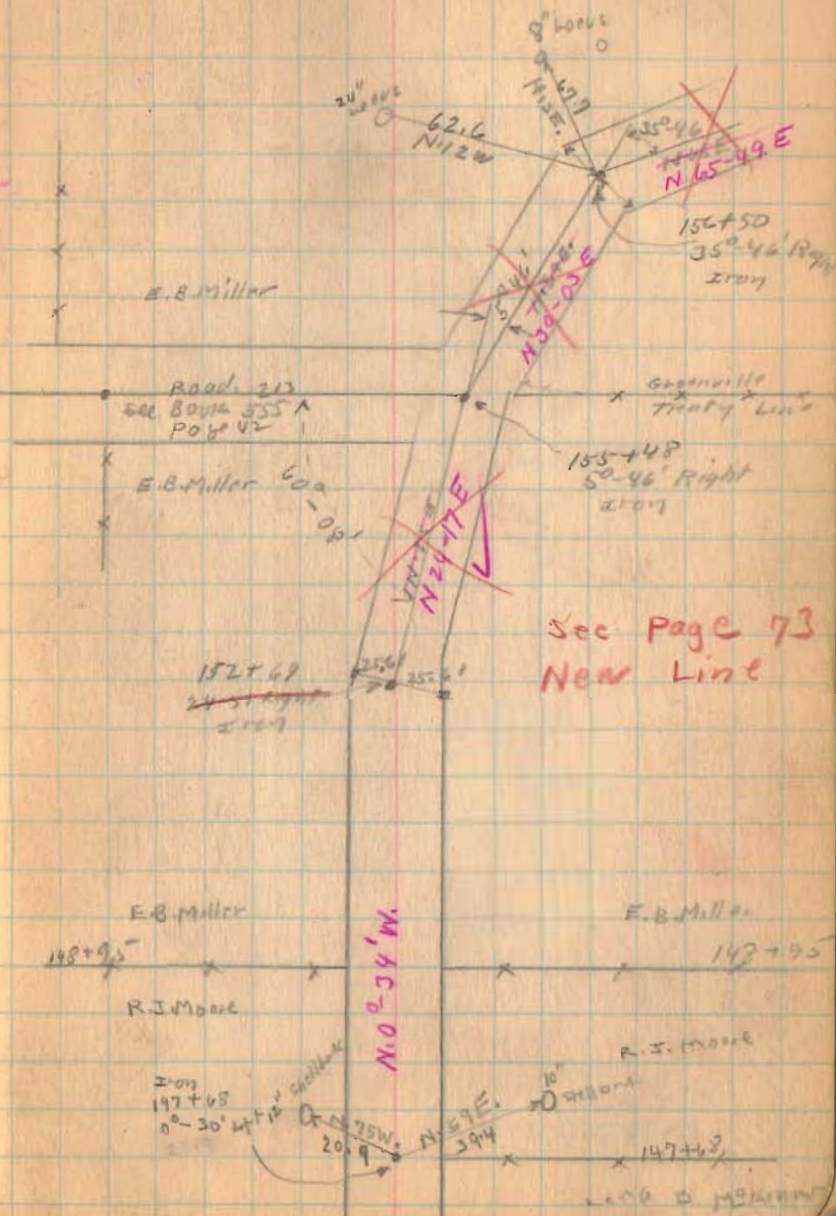 8" Locus
24" Locus
67.7
62.6
N.12W
35°-46
N 65-49 E
156+50
35°-46' Right
Iron
5°46'
N 30-03 E
E.B. Miller
Road. 213
See Book 555
Page 42
Greenville
Treaty Line
155+48
5°-46' Right
Iron
E.B. Miller
N 24-17 E
See Page 73
New Line
152+69
Iron
25.6'
25.6'
E.B. Miller
E.B. Miller
148+95
148+95
N.0°34'W.
R.J. Moore
R.J. Moore
Iron
147+68
0°-30' Lft
12" Shellbark
N.75W.
20.9
N.59E.
39.4
10"
147+68